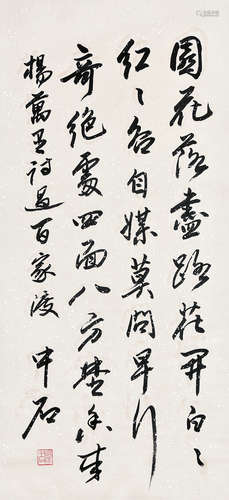 園花落盡路花開白〻
紅〻各自媒莫問早行
奇絕處四面八方埜香來
楊萬里詩過百家渡 中石